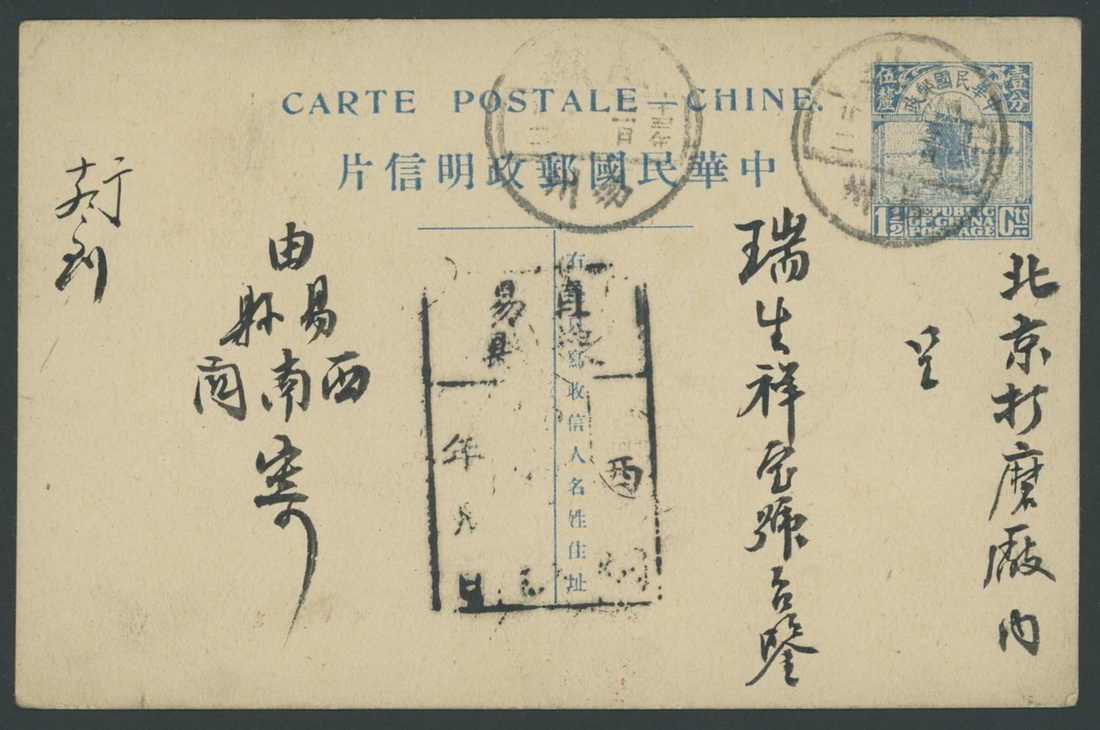 CARTE POSTALE—CHINE.
中華民國郵政明信片
中華民國郵政
壹分
伍釐
1½ Cts
REPUBLIC
OF CHINA
POSTAGE
北京打磨廠內
呈
瑞生祥宝號台鑒
右邊只寫收信人名姓住址
由易縣西南 寄
易州
十三年
二日
易縣
酉
年月日